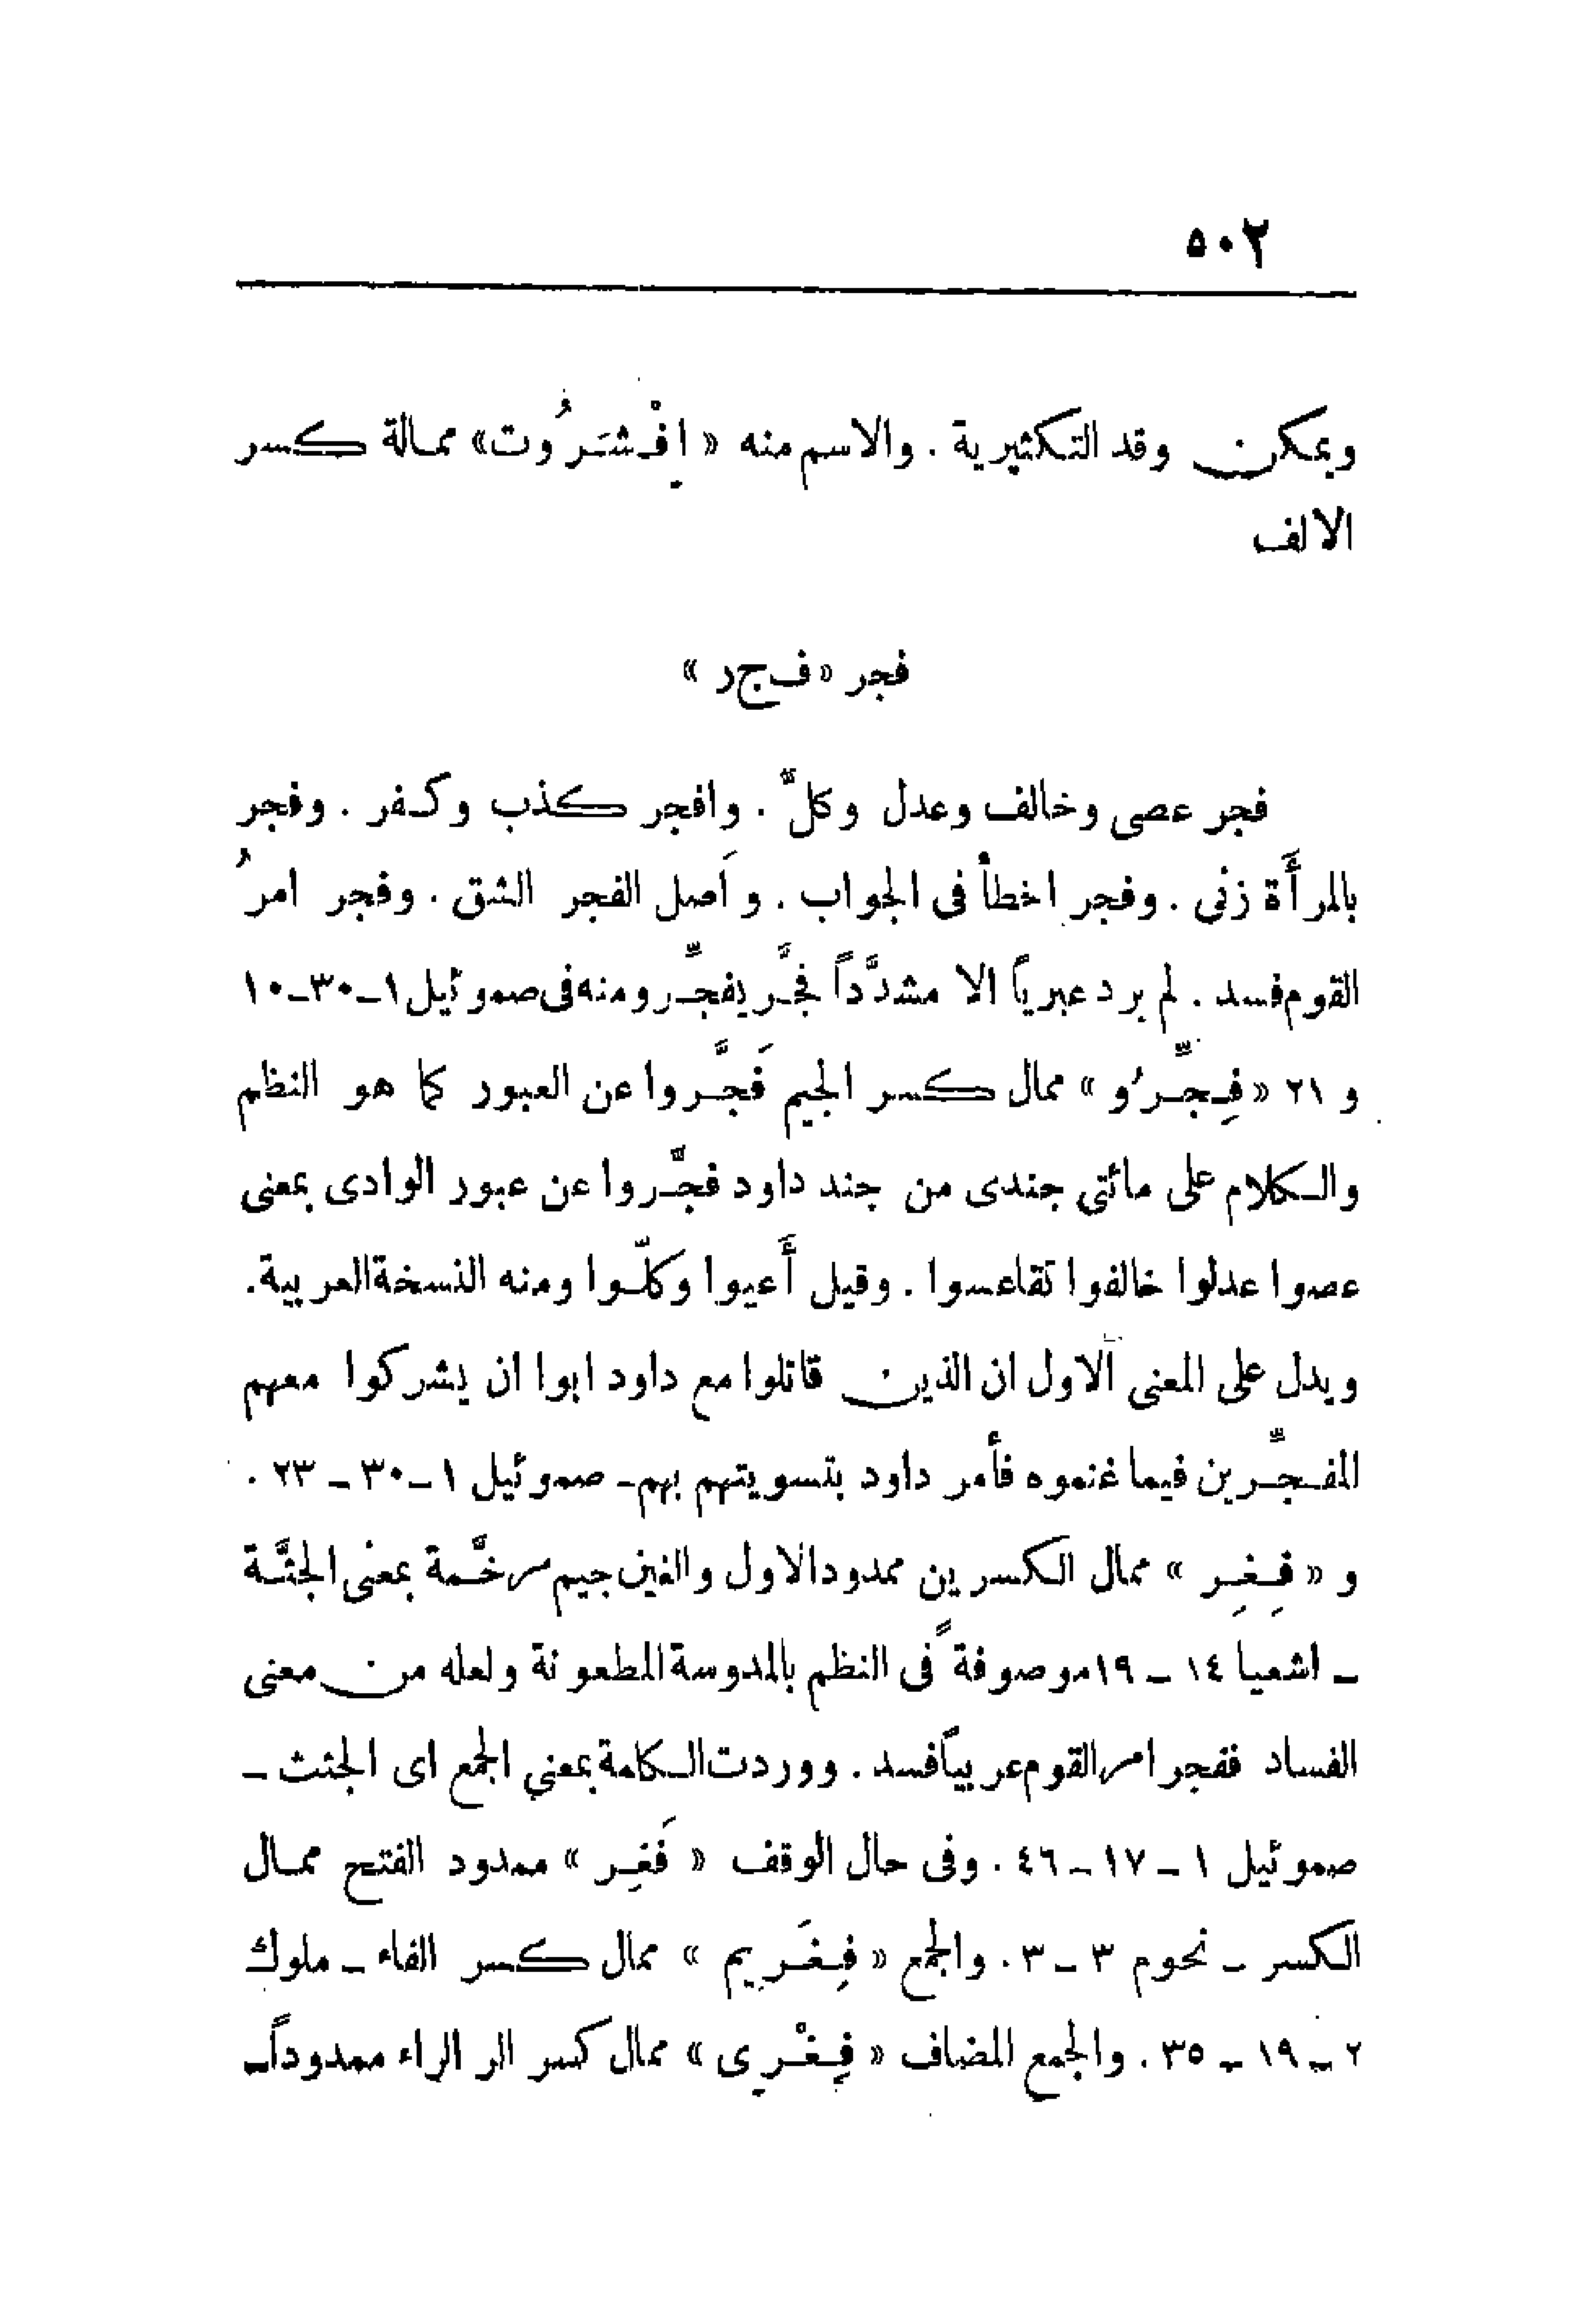 ٥٠٢
ويمكن وقد التكثيرية . والاسم منه « اِفْشَرُوت» ممالة كسر
الالف
فجر «ف ج ر »
فجر عصى وخالف وعدل وكلَّ . وافجر كذب وكفر . وفجر
بالمرأَة زنى . وفجر اخطأ فى الجواب . واَصل الفجر الشق . وفجر امرُ
القوم فسد . لم يرد عبرياً الا مشدَّداً فجَّر يفجِّر ومنه فى صموئيل ١-٣٠-١٠
و ٢١ «فِجِّرُو » ممال كسر الجيم فَجَّروا عن العبور كما هو النظم
والكلام على مائتى جندى من جند داود فجَّروا عن عبور الوادى بمعنى
عصوا عدلوا خالفوا تقاعسوا . وقيل أَعيوا وكلّوا ومنه النسخة العربية.
ويدل على المعنى الاول ان الذين قاتلوا مع داود ابوا ان يشركوا معهم
المفجِّرين فيما غنموه فأمر داود بتسويتهم بهم- صموئيل ١-٣٠-٢٣ .
و « فِغِر » ممال الكسرين ممدود الاول والغين جيم مرخَّمة بمعنى الجثَّة
- اشعيا ١٤ - ١٩ موصوفةً فى النظم بالمدوسة المطعونة ولعله من معنى
الفساد ففجر امر القوم عربياً فسد . ووردت الكلمة بمعنى الجمع اى الجثث -
صموئيل ١ - ١٧ - ٤٦ . وفى حال الوقف « فَغِر » ممدود الفتح ممال
الكسر - نحوم ٣ - ٣ . والجمع « فِغَرِيم » ممال كسر الفاء - ملوك
٢ - ١٩ - ٣٥ . والجمع المضاف « فِغْرِى » ممال كسر الر الراء ممدوداً-